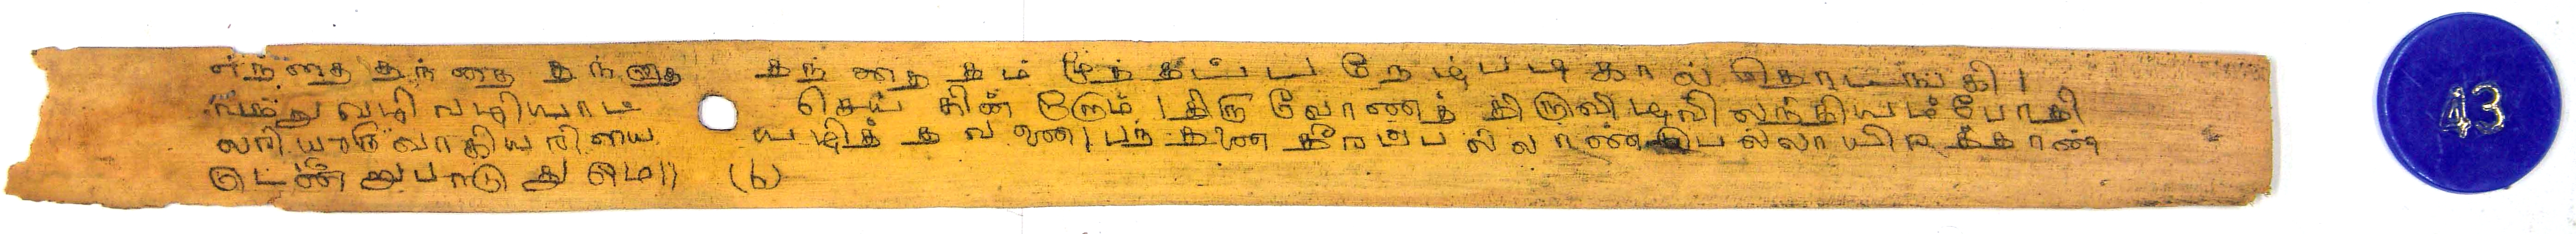 எந்தை தந்தை தந்தை தந்தை தம் மூத்தப்பன் ஏழ்படிகால் தொடங்கி।
வந்து வழிவழியாட செய்கின்றோம்।திருவோணத் திருவிழவிலந்தியம்போதி
லரியுருவாகியரியை யழித்தவனை। பந்தனை தீரப்பல்லாண்டு பல்லாயிரத்தாண்
டென்று பாடுதுமெ॥ (௬)
43